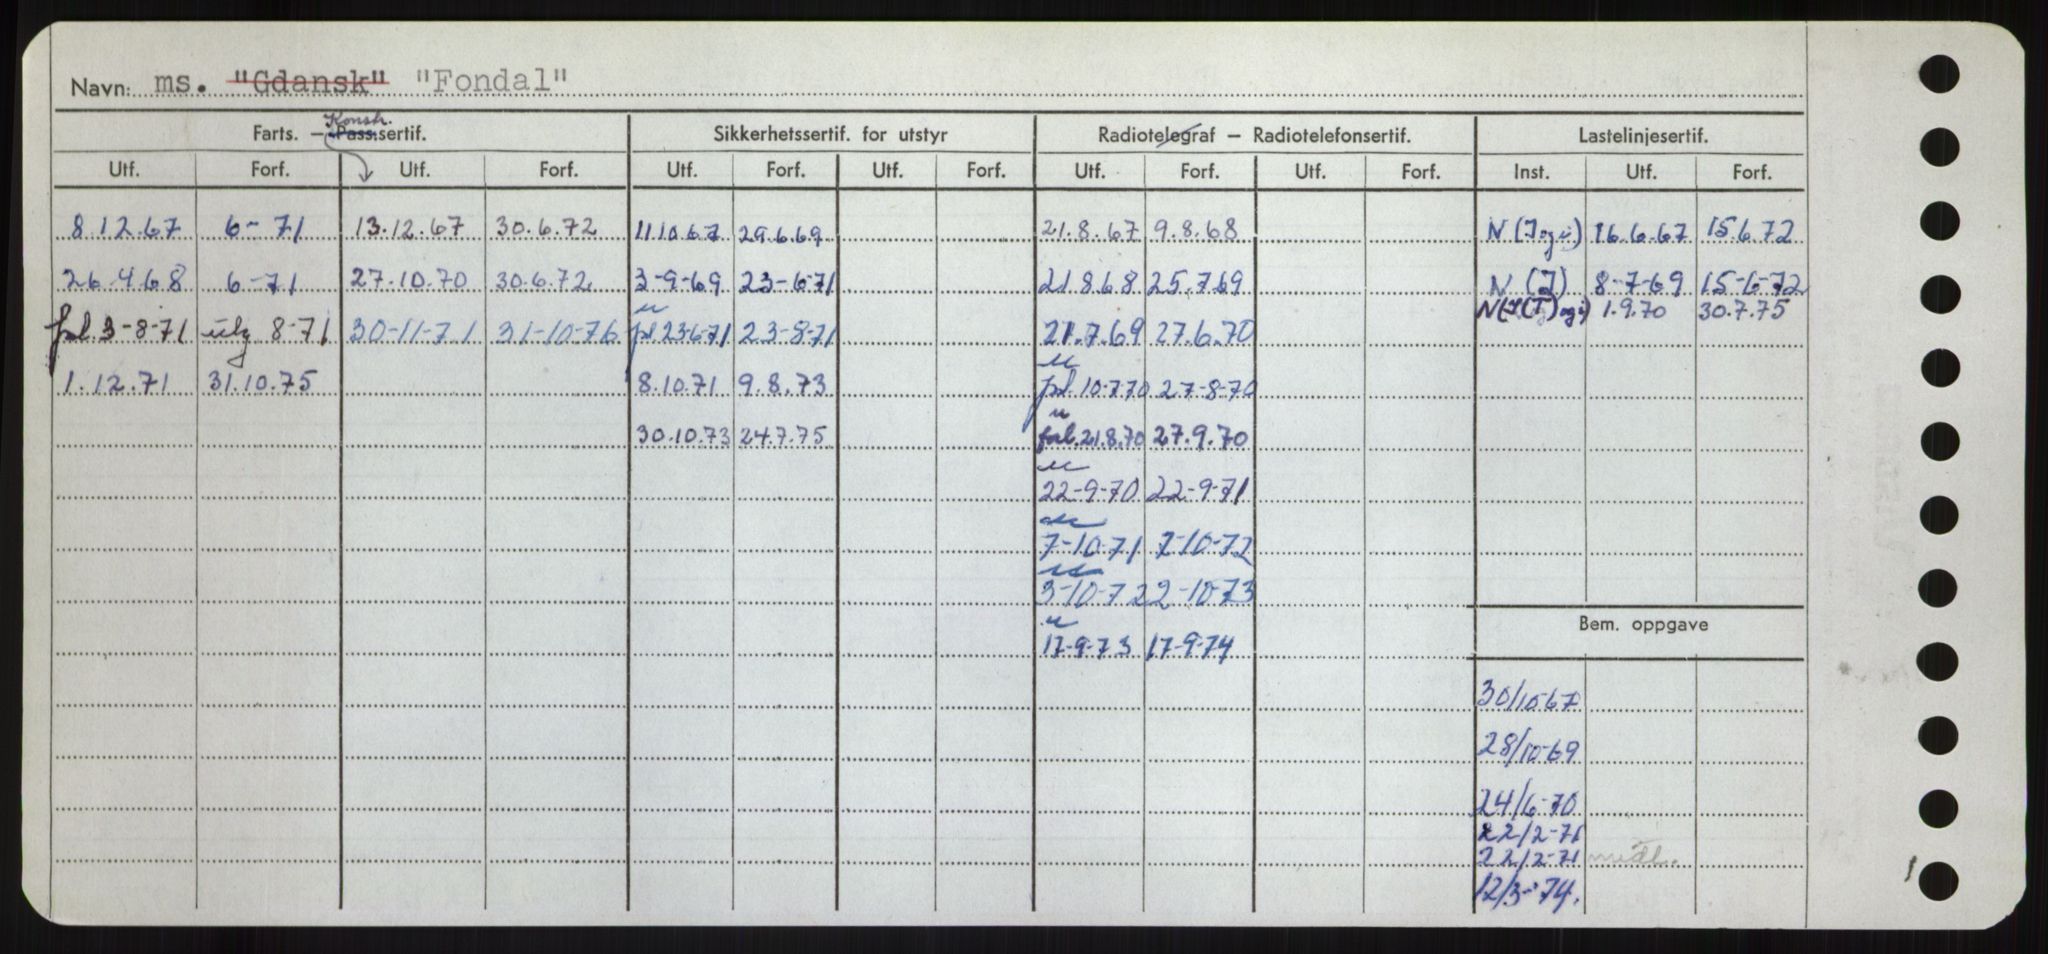 Navn: ms. "Gdansk" "Fondal"
Konstr.
Farts. – Pass.sertif. Sikkerhetssertif. for utstyr Radiotelegraf – Radiotelefonsertif. Lastelinjesertif.
Utf. Forf. Utf. Forf. Utf. Forf. Utf. Forf. Utf. Forf. Utf. Forf. Inst. Utf. Forf.
8.12.67 6-71 13.12.67 30.6.72 11.10.67 29.6.69 21.8.67 9.8.68 N (J og i) 16.6.67 15.6.72
26.4.68 6-71 27.10.70 30.6.72 3-9-69 23-6-71 21.8.68 25.7.69 N (J) 8-7-69 15-6-72
N(J(T) og i) 1.9.70 30.7.75
u
3-8-71 utg 8-71 30-11-71 31-10-76 23-6-71 23-8-71 21.7.69 27.6.70
u
1.12.71 31.10.75 8.10.71 9.8.73 10-7-70 27-8-70
u
30.10.73 24.7.75 forl. 21.8.70 27.9.70
u
22-9-70 22-9-71
u
7-10-71 7-10-72
u
3-10-72 2-10-73
Bem. oppgave
u
17-9-73 17-9-74
30/10-67
28/10-69
24/6-70
22/2-71
22/2-71 midl.
12/3-74.